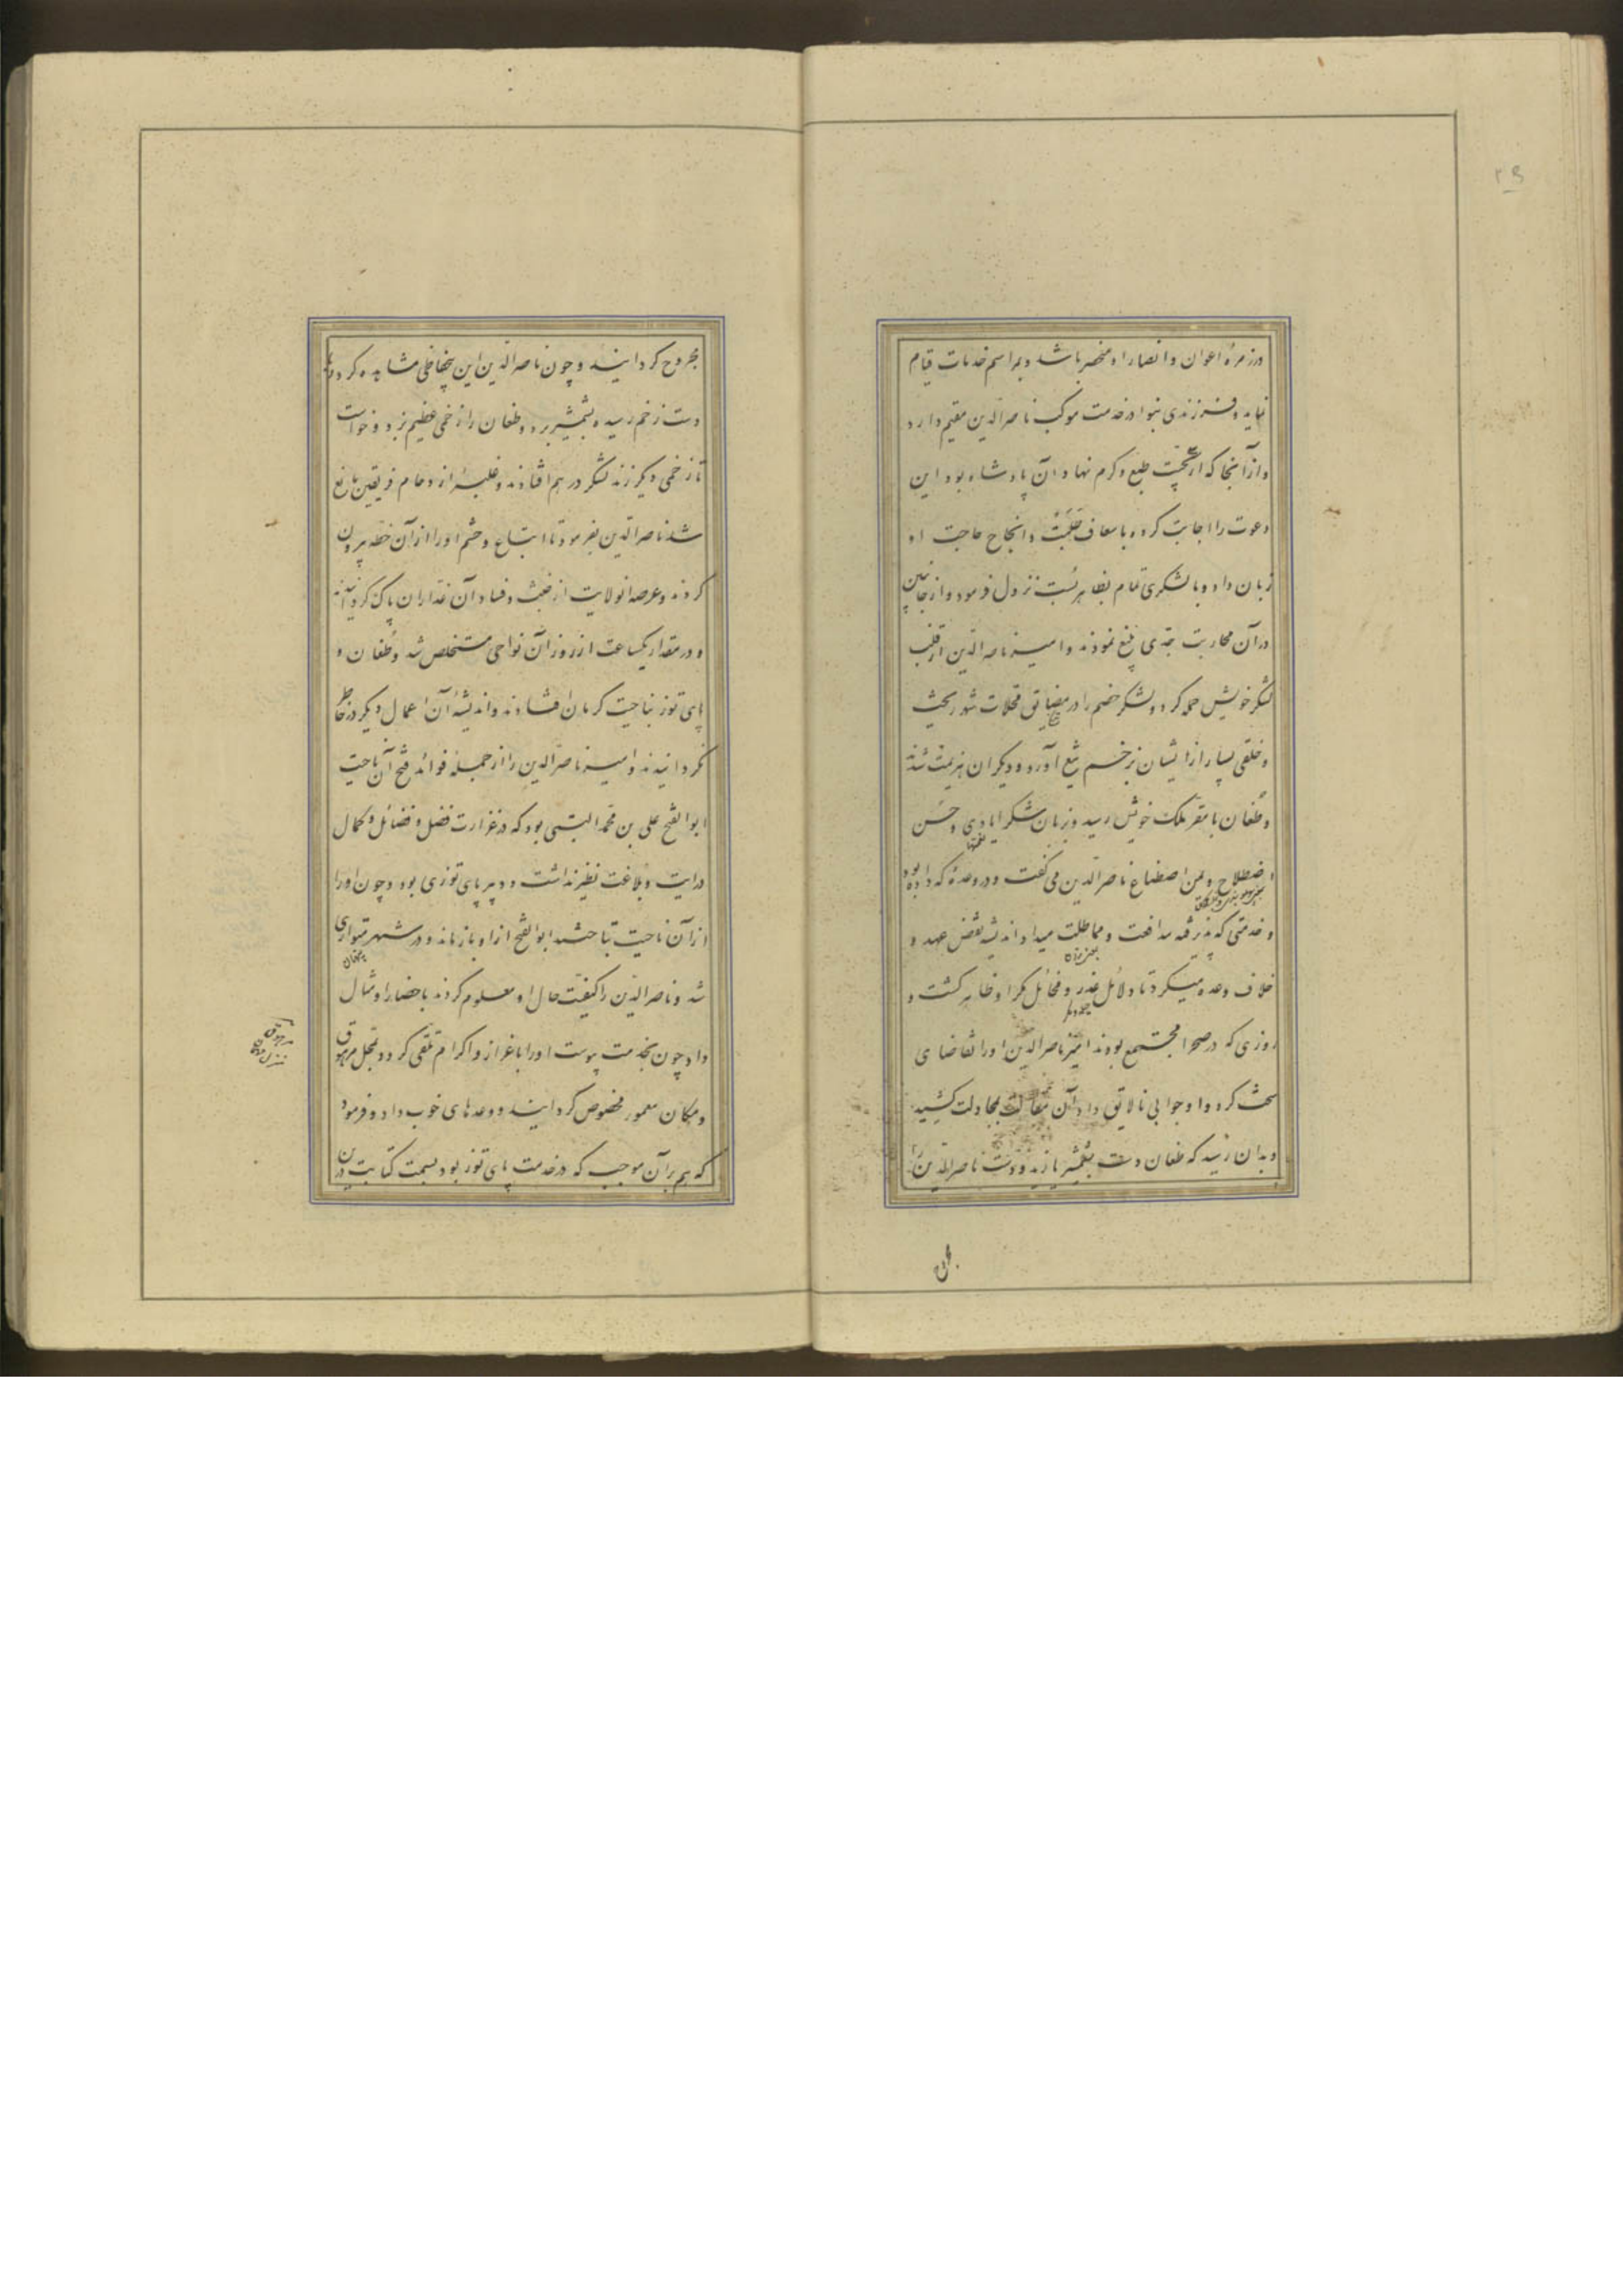 در زمرهٔ اعوان و انصار او منحصر باشد و بمراسم خدمات قیام
نماید و فرزندی بنوا در خدمت موکب ناصرالدین مقیم دارد
و از آنجا که طبع و کرم نهاد آن پادشاه بود این
دعوت را اجابت کرد و باسعاف طلبت و انجاح حاجت او
زبان داد و با لشکری تمام بظاهر بست نزول فرمود و از جانبین
در آن محاربت جدی بلیغ نمودند و امیر ناصرالدین از قلب
لشکر خویش حمله کرد و لشکر خصم را در مضایق محلات شهر ریخت
و خلقی بسیار از ایشان بزخم تیغ آورد و دیگران هزیمت شدند
و طغان با مقر ملک خویش رسید و بزبان شکر ایادی و حسن
نعمتها
اصطلاح و یمن اصطناع ناصرالدین می گفت و در وعدهٔ که داده بود
و خدمتی که پذرفته مدافعت و مماطلت میداد اندیشه نقض عهد و
خلاف وعده میکرد تا دلائل غدر و مخائل مکر او ظاهر گشت و
روزی که در صحرا مجتمع بودند امیر ناصرالدین او را تقاضای
سخت کرد و او جوابی نالایق داد و آن مقالت بمجادلت کشید
و بدان رسید که طغان دست بشمشیر یازید و دست ناصرالدین را
مجروح گردانید و چون ناصرالدین این مشاهده کرد
دست زخم رسیده بشمشیر برد و طغان را زخمی عظیم بزد و خواست
تا زخمی دیگر زند لشکر در هم افتادند و غلبه ازدحام فریقین مانع
شد ناصرالدین بفرمود تا اتباع و حشم او را از آن خطه بیرون
کردند و عرصه آنولایت از خبث و فساد آن غداران پاک گردانیدند
و در مقدار یکساعت از روز آن نواحی مستخلص شد و طغان و
بای توز بناحیت کرمان افتادند و اندیشه آن اعمال دیگر در خاطر
نگردانیدند و امیر ناصرالدین را از جمله فوائد فتح آن ناحیت
ابوالفتح علی بن محمد البستی بود که در غزارت فضل و فضائل و کمال
درایت و بلاغت نظیر نداشت و دبیر بای توزی بود و چون او را
از آن ناحیت ابوالفتح از او باز ماند و در شهر متواری
پنهان
شد و ناصرالدین را کیفیت حال او معلوم کردند باحضار او مثال
داد چون بخدمت پیوست او را باعزاز و اکرام تلقی کرد و بمحل مرموق
و مکان معمور مخصوص گردانید و وعدهای خوب داد و فرمود
که هم بر آن موجب که در خدمت بای توز بود بسمت کتابت